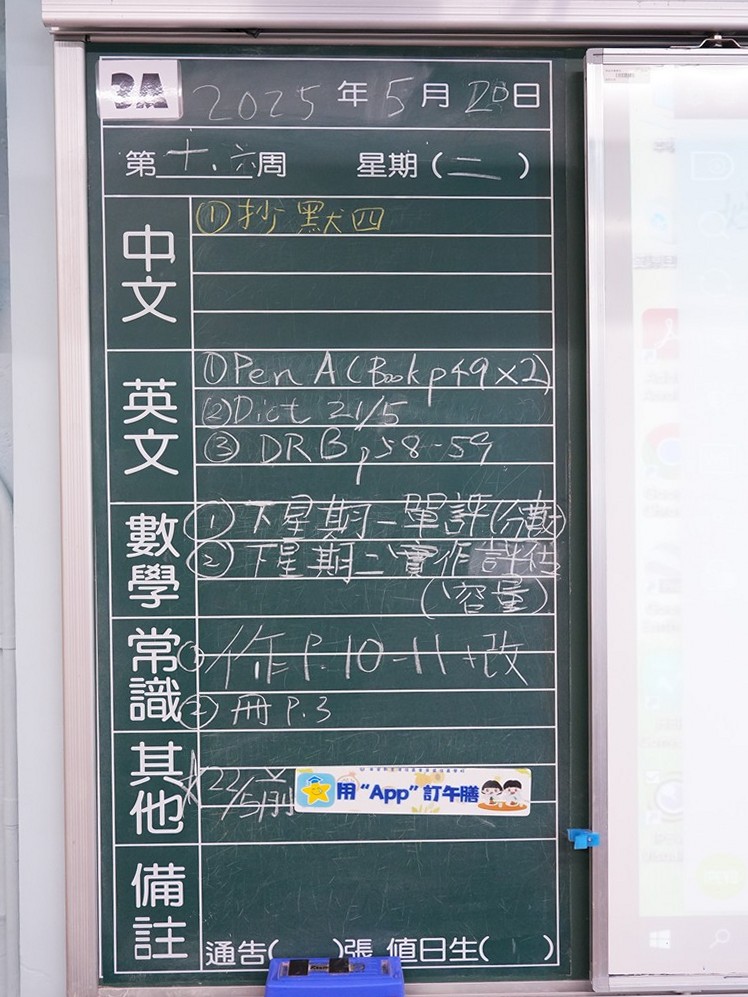 3A 2025年5月20日
第十六周 星期(二)
中文
①抄默四
英文
①Pen A (Book p49x2)
②Dict 21/5
③DRB p58-59
數學
①下星期一單評(分數)
②下星期二實作評估
(容量)
常識
①作P.10-11+改
②冊P.3
其他
22/5前
用“App”訂午膳
備註
通告( )張 值日生( )